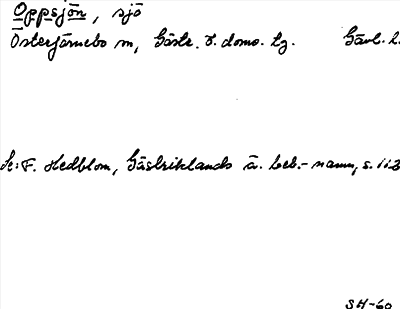 Oppsjön, sjö
Österfärnebo sn, Gästr. V. doms. tg. Gävl. l.
Se: F. Hedblom, Gästriklands ä. beb.-namn, s. 113
SH-60